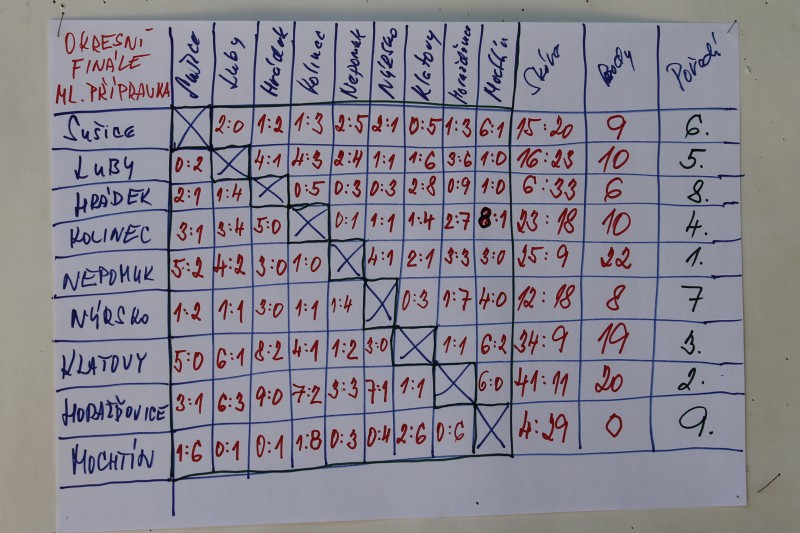 OKRESNÍ
FINÁLE
ML. PŘÍPRAVKA
Sušice Luby Hrádek Kolinec Nepomuk Nýrsko Klatovy Horažďovice Mochtín Skóre Body Pořadí
SUŠICE 2:0 1:2 1:3 2:5 2:1 0:5 1:3 6:1 15:20 9 6.
LUBY 0:2 4:1 4:3 2:4 1:1 1:6 3:6 1:0 16:23 10 5.
HRÁDEK 2:1 1:4 0:5 0:3 0:3 2:8 0:9 1:0 6:33 6 8.
KOLINEC 3:1 3:4 5:0 0:1 1:1 1:4 2:7 8:1 23:18 10 4.
NEPOMUK 5:2 4:2 3:0 1:0 4:1 2:1 3:3 3:0 25:9 22 1.
NÝRSKO 1:2 1:1 3:0 1:1 1:4 0:3 1:7 4:0 12:18 8 7
KLATOVY 5:0 6:1 8:2 4:1 1:2 3:0 1:1 6:2 34:9 19 3.
HORAŽĎOVICE 3:1 6:3 9:0 7:2 3:3 7:1 1:1 6:0 41:11 20 2.
MOCHTÍN 1:6 0:1 0:1 1:8 0:3 0:4 2:6 0:6 4:29 0 9.